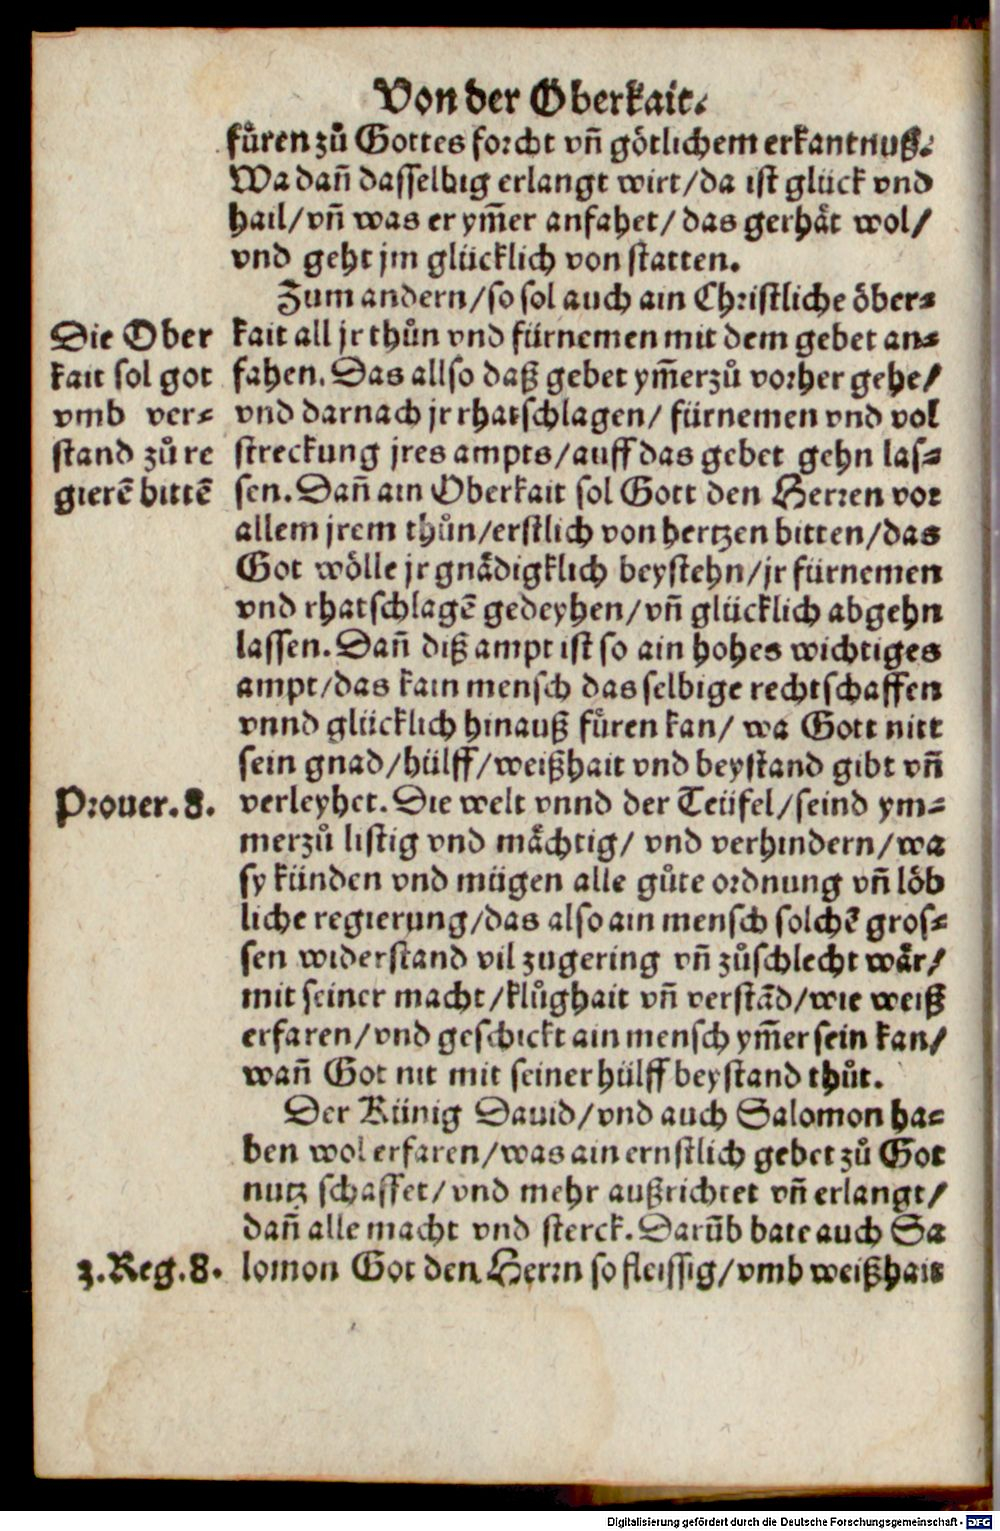 Von der Oberkait.
fuͤren zuͦ Gottes forcht vñ goͤtlichem erkantnuß.
Wa dañ dasselbig erlangt wirt/da ist glück vnd
hail/vñ was er ym̃er anfahet/das gerhaͤt wol/
vnd geht jm glücklich von statten.
Zum andern/so sol auch ain Christliche oͤber⸗
Die Ober
kait sol got
vmb ver⸗
stand zuͦ re
gierē bittē
kait all jr thuͦn vnd fürnemen mit dem gebet an⸗
fahen. Das allso daß gebet ym̃erzuͦ vorher gehe/
vnd darnach jr rhatschlagen/ fürnemen vnd vol
streckung jres ampts/auff das gebet gehn las⸗
sen. Dañ ain Oberkait sol Gott den Herren vor
allem jrem thuͦn/erstlich von hertzen bitten/das
Got woͤlle jr gnaͤdigklich beystehn/jr fürnemen
vnd rhatschlagē gedeyhen/vñ glücklich abgehn
lassen. Dañ diß ampt ist so ain hohes wichtiges
ampt/das kain mensch das selbige rechtschaffen
vnnd glücklich hinauß fuͤren kan/ wa Gott nitt
sein gnad/hülff/weißhait vnd beystand gibt vñ
Prouer. 8.
verleyhet. Die welt vnnd der Teüfel/seind ym⸗
merzuͦ listig vnd maͤchtig/ vnd verhindern/wa
sy künden vnd mügen alle guͦte ordnung vñ loͤb
liche regierung/das also ain mensch solchē gros⸗
sen widerstand vil zugering vñ zuͦschlecht waͤr/
mit seiner macht/kluͦghait vñ verstād/wie weiß
erfaren/vnd geschickt ain mensch ym̃er sein kan/
wañ Got nit mit seiner hülff beystand thuͦt.
Der Künig Dauid/vnd auch Salomon ha⸗
ben wol erfaren/was ain ernstlich gebet zuͦ Got
nutz schaffet/vnd mehr außrichtet vñ erlangt/
dañ alle macht vnd sterck. Darūb bate auch Sa
3. Reg. 8.
lomon Got den Herrn so fleissig/vmb weißhait
Digitalisierung gefördert durch die Deutsche Forschungsgemeinschaft - DFG